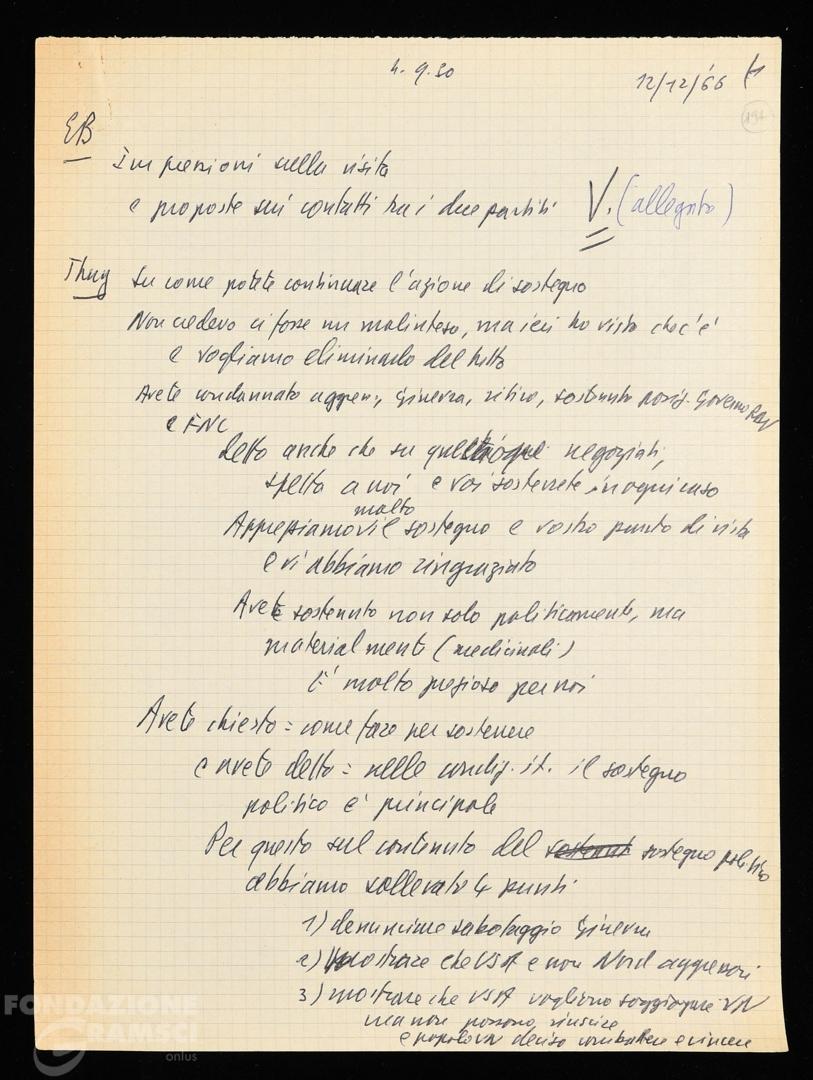 h. 9.30
12/12/'66
EB
Impressioni sulla visita
e proposte sui contatti tra i due partiti V. (allegato)
Thuy Su come potete continuare l'azione di sostegno
Non credevo ci fosse un malinteso, ma ieri ho visto che c'è
e vogliamo eliminarlo del tutto
Avete condannato aggress., Ginevra, ritiro, sostenuto posiz. Governo RDV
e FNL
detto anche che su negoziati,
spetta a noi e voi sosterrete in ogni caso
molto
Apprezziamo il sostegno e vostro punto di vista
e vi abbiamo ringraziato
Avete sostenuto non solo politicamente, ma
materialmente (medicinali)
E' molto prezioso per noi
Avete chiesto = come fare per sostenere
e avete detto = nelle condiz. it. il sostegno
politico è principale
Per questo sul contenuto del sostegno politico
abbiamo sollevato 4 punti
1) denunciare sabotaggio Ginevra
2) Mostrare che USA e non Nord aggressori
3) mostrare che USA vogliono soggiogare VN
ma non possono riuscire
e popolo VN deciso combattere e vincere
FONDAZIONE
GRAMSCI
onlus